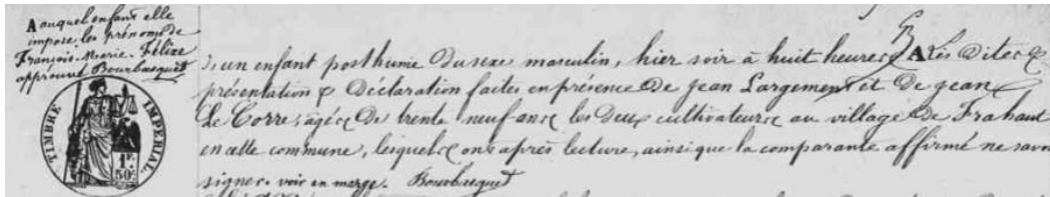 A auquel enfant elle
impose les prénoms de
François-Marie-Félix
approuvé Bourbacquet
TIMBRE IMPÉRIAL
1F.
50c.
d'un enfant posthume du sexe masculin, hier soir à huit heures A Les dites
présentation & Déclaration faites en présence de jean Largement et de jean
Le Corre, âgés De trente neuf ans, les deux cultivateurs au village De Frahaut
en cette commune, lesquels ont après lecture, ainsi que la comparante affirmé ne savoir
signer. voir en marge. Bourbacquet